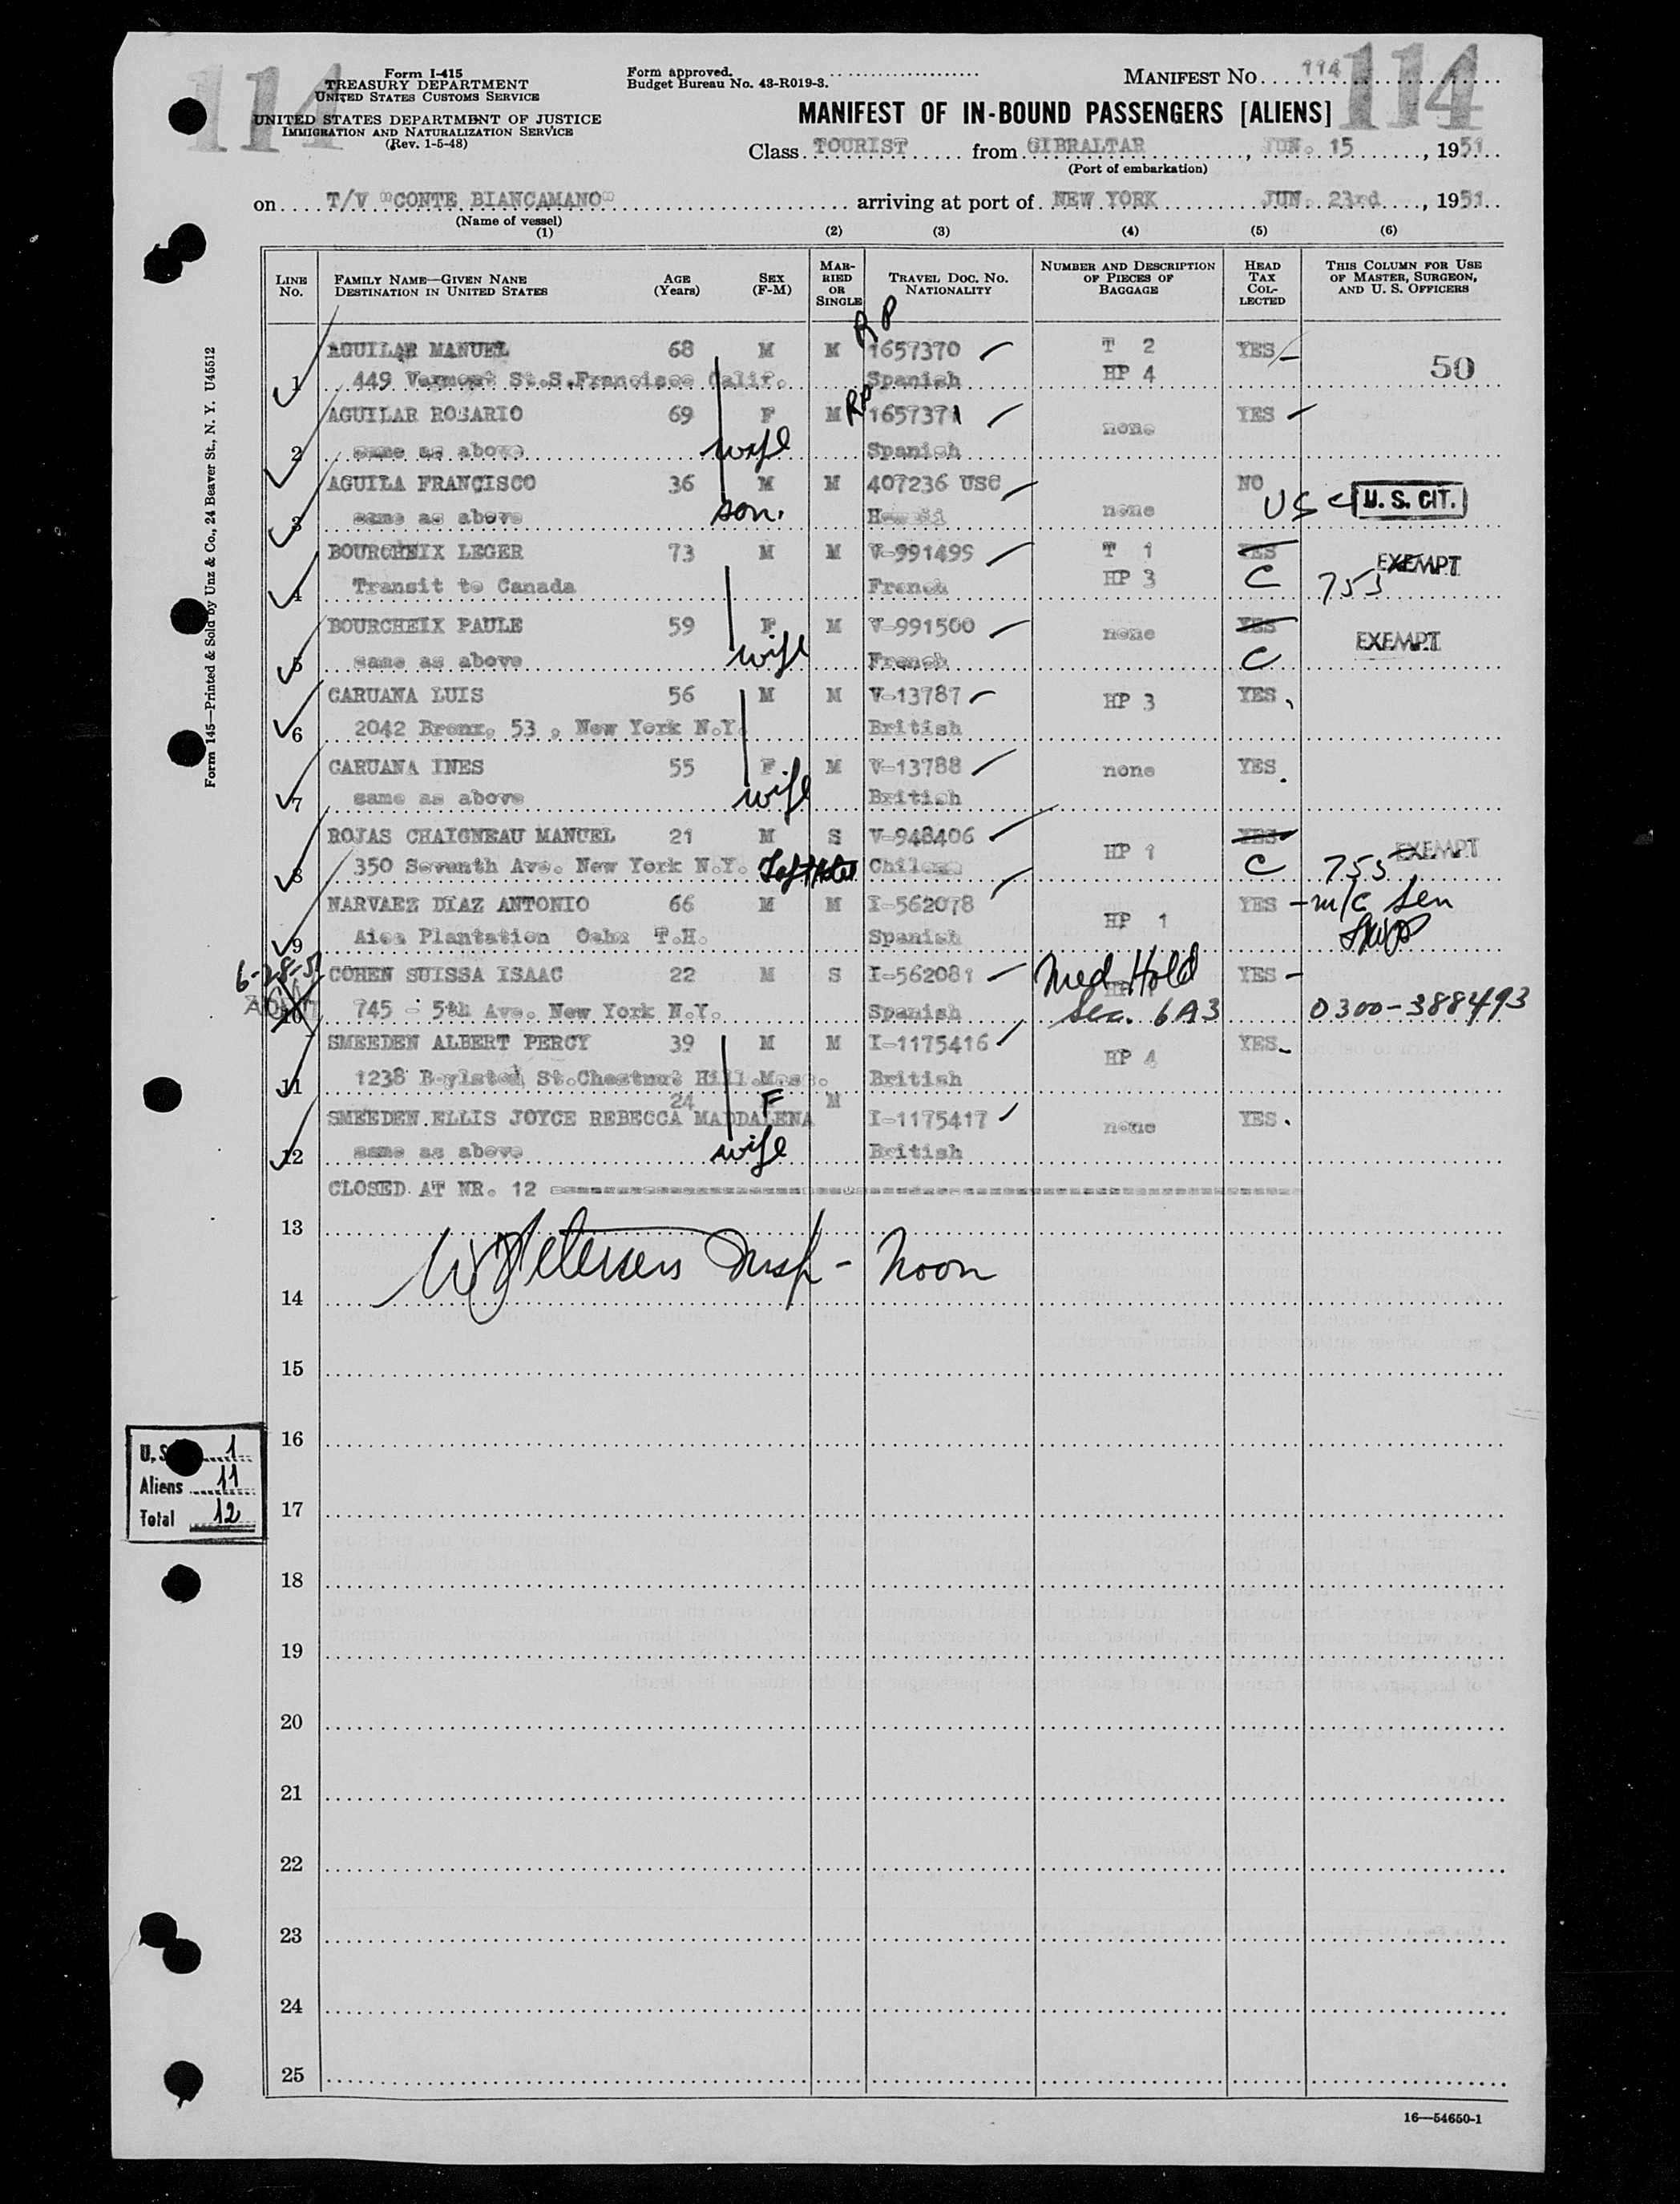 114
Form I-415
TREASURY DEPARTMENT
UNITED STATES CUSTOMS SERVICE
UNITED STATES DEPARTMENT OF JUSTICE
IMMIGRATION AND NATURALIZATION SERVICE
(Rev. 1-5-48)
Form approved.
Budget Bureau No. 43-R019-3.
MANIFEST NO. 114
114
MANIFEST OF IN-BOUND PASSENGERS [ALIENS]
Class TOURIST from GIBRALTAR, JUN. 15, 1951
(Port of embarkation)
on T/V "CONTE BIANCAMANO" arriving at port of NEW YORK JUN. 23rd, 1951
(Name of vessel)
(1) (2) (3) (4) (5) (6)
LINE NO.
FAMILY NAME—GIVEN NANE
DESTINATION IN UNITED STATES
AGE (Years)
SEX (F-M)
MARRIED OR SINGLE
TRAVEL DOC. NO. NATIONALITY
NUMBER AND DESCRIPTION OF PIECES OF BAGGAGE
HEAD TAX COLLECTED
THIS COLUMN FOR USE OF MASTER, SURGEON, AND U. S. OFFICERS
AGUILAR MANUEL 68 M M RP 1657370 T 2 YES
1 449 Vermont St.S.Francisco Calif. Spanish HP 4 50
AGUILAR ROSARIO 69 F M RP 1657371 none YES
2 same as above wife Spanish
AGUILA FRANCISCO 36 M M 407236 USC NO
3 same as above son. Hawaii none USC U. S. CIT.
BOURCHEIX LEGER 73 M M V-991499 T 1 YES EXEMPT
4 Transit to Canada French HP 3 C 753
BOURCHEIX PAULE 59 F M V-991500 none YES EXEMPT
5 same as above wife French C
CARUANA LUIS 56 M M V-13787 HP 3 YES
6 2042 Bronx, 53 , New York N.Y. British
CARUANA INES 55 F M V-13788 none YES
7 same as above wife British
ROJAS CHAIGNEAU MANUEL 21 M S V-948406 HP 1 YES EXEMPT
8 350 Seventh Ave. New York N.Y. Taft Hotel C 753
NARVAEZ DIAZ ANTONIO 66 M M I-562078 HP 1 YES m/c Sen
9 Aiea Plantation Oahu T.H. Spanish
6-28-51 COHEN SUISSA ISAAC 22 M S I-562081 Med Hold YES
10 745 - 5th Ave. New York N.Y. Spanish Sec. 6A3 0300-388493
SMEEDEN ALBERT PERCY 39 M M I-1175416 HP 4 YES
11 1238 Boylston St.Chestnut Hill.Mass. British
24 F M
SMEEDEN ELLIS JOYCE REBECCA MADDALENA I-1175417 none YES
12 same as above wife British
CLOSED AT NR. 12
13
W Petersen Insp - Noon
14
15
16
17
18
19
20
21
22
23
24
25
U.S. 1
Aliens 11
Total 12
Form 145—Printed & Sold by Unz & Co., 24 Beaver St., N. Y. U45512
16—54650-1